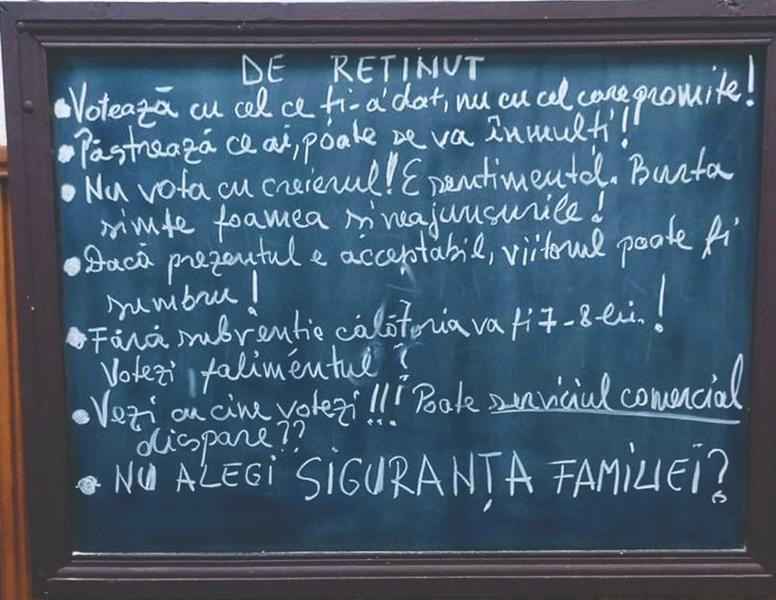 DE RETINUT
• Votează cu cel ce ți-a dat, nu cu cel care promite!
• Păstrează ce ai, poate se va înmulți!
• Nu vota cu creierul! E sentimental. Burta
simte foamea și neajunsurile!
• Dacă prezentul e acceptabil, viitorul poate fi
sumbru!
• Fără subvenție călătoria va fi 7-8 lei.!
Votezi falimentul?
• Vezi cu cine votezi!!! Poate serviciul comercial
dispare??
• NU ALEGI SIGURANȚA FAMILIEI?